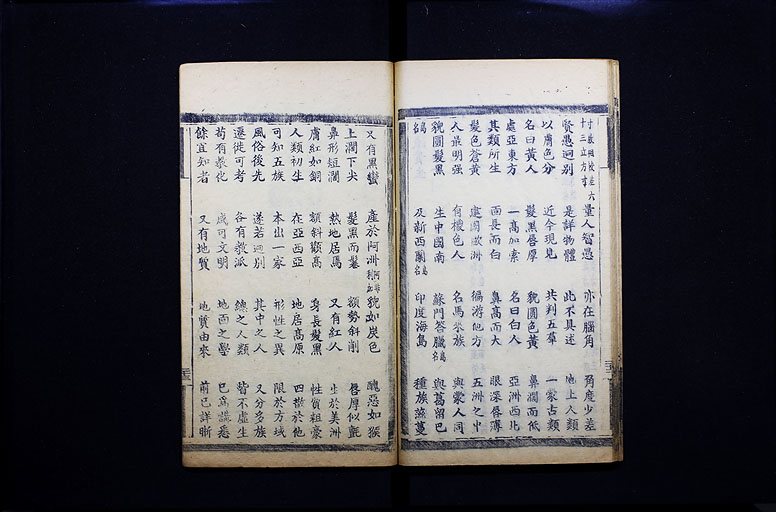 十三立方寸 量人智愚 亦在腦角 角度少差
賢愚迥别 是詳物體 此不具述 地上人類
以膚色分 近今現見 共判五羣 一蒙古類
名曰黃人 黑髮唇厚 貌圓色黃 鼻濶而低
處亞東方 一高加索 名曰白人 亞洲西北
其類所生 面長而白 鼻高而大 眼深唇薄
髮色蒼黃 歐洲 徧游他方 五洲之中
人最明强 有椶色人 名馬來族 與蒙人同
貌圓髮黑 生中國南 蘇門答臘島名 與葛留巴
島名 及新西蘭島名 印度海島 種族蔓
又有黑蠻 產於阿洲阿非利加 貌如炭色 醜惡如猴
上濶下尖 髮黑而鬈 額勢斜削 唇厚似氈
鼻形短濶 熱地居焉 又有紅人 生於美洲
膚紅如銅 額斜顴高 身長髮黑 性質粗豪
人類初生 在亞西亞 地居高原 四散於他
可知五族 本出一家 形性之異 限於方域
風俗後先 遂若迥别 其中之人 又分多族
遷徙可考 各有教派 總之人類 皆不虛生
苟有教化 咸可文明 地面之學 已為講悉
餘宜知者 又有地質 地質由來 前已詳晰